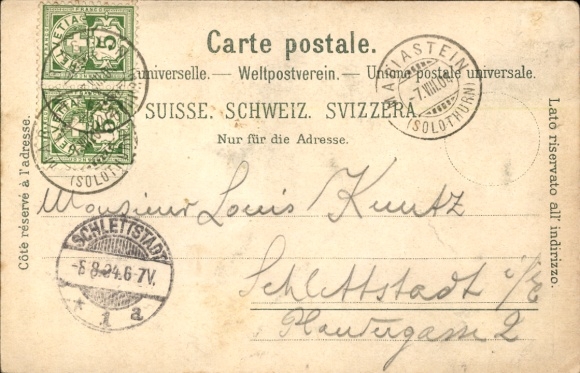 Carte postale.
universelle. — Weltpostverein. — Union postale universale.
SUISSE. SCHWEIZ. SVIZZERA.
Nur für die Adresse.
Côté réservé à l'adresse.
Lato riservato all' indirizzo.
FRANCO
HELVETIA
5
HELVETIA
5
(SOLOTH
(SOLOTHURN)
MARIASTEIN
(SOLOTHURN)
SCHLETTSTADT
6-7V.
* 1 a
Monsieur Louis Kuntz
Schlettstadt i/E
2